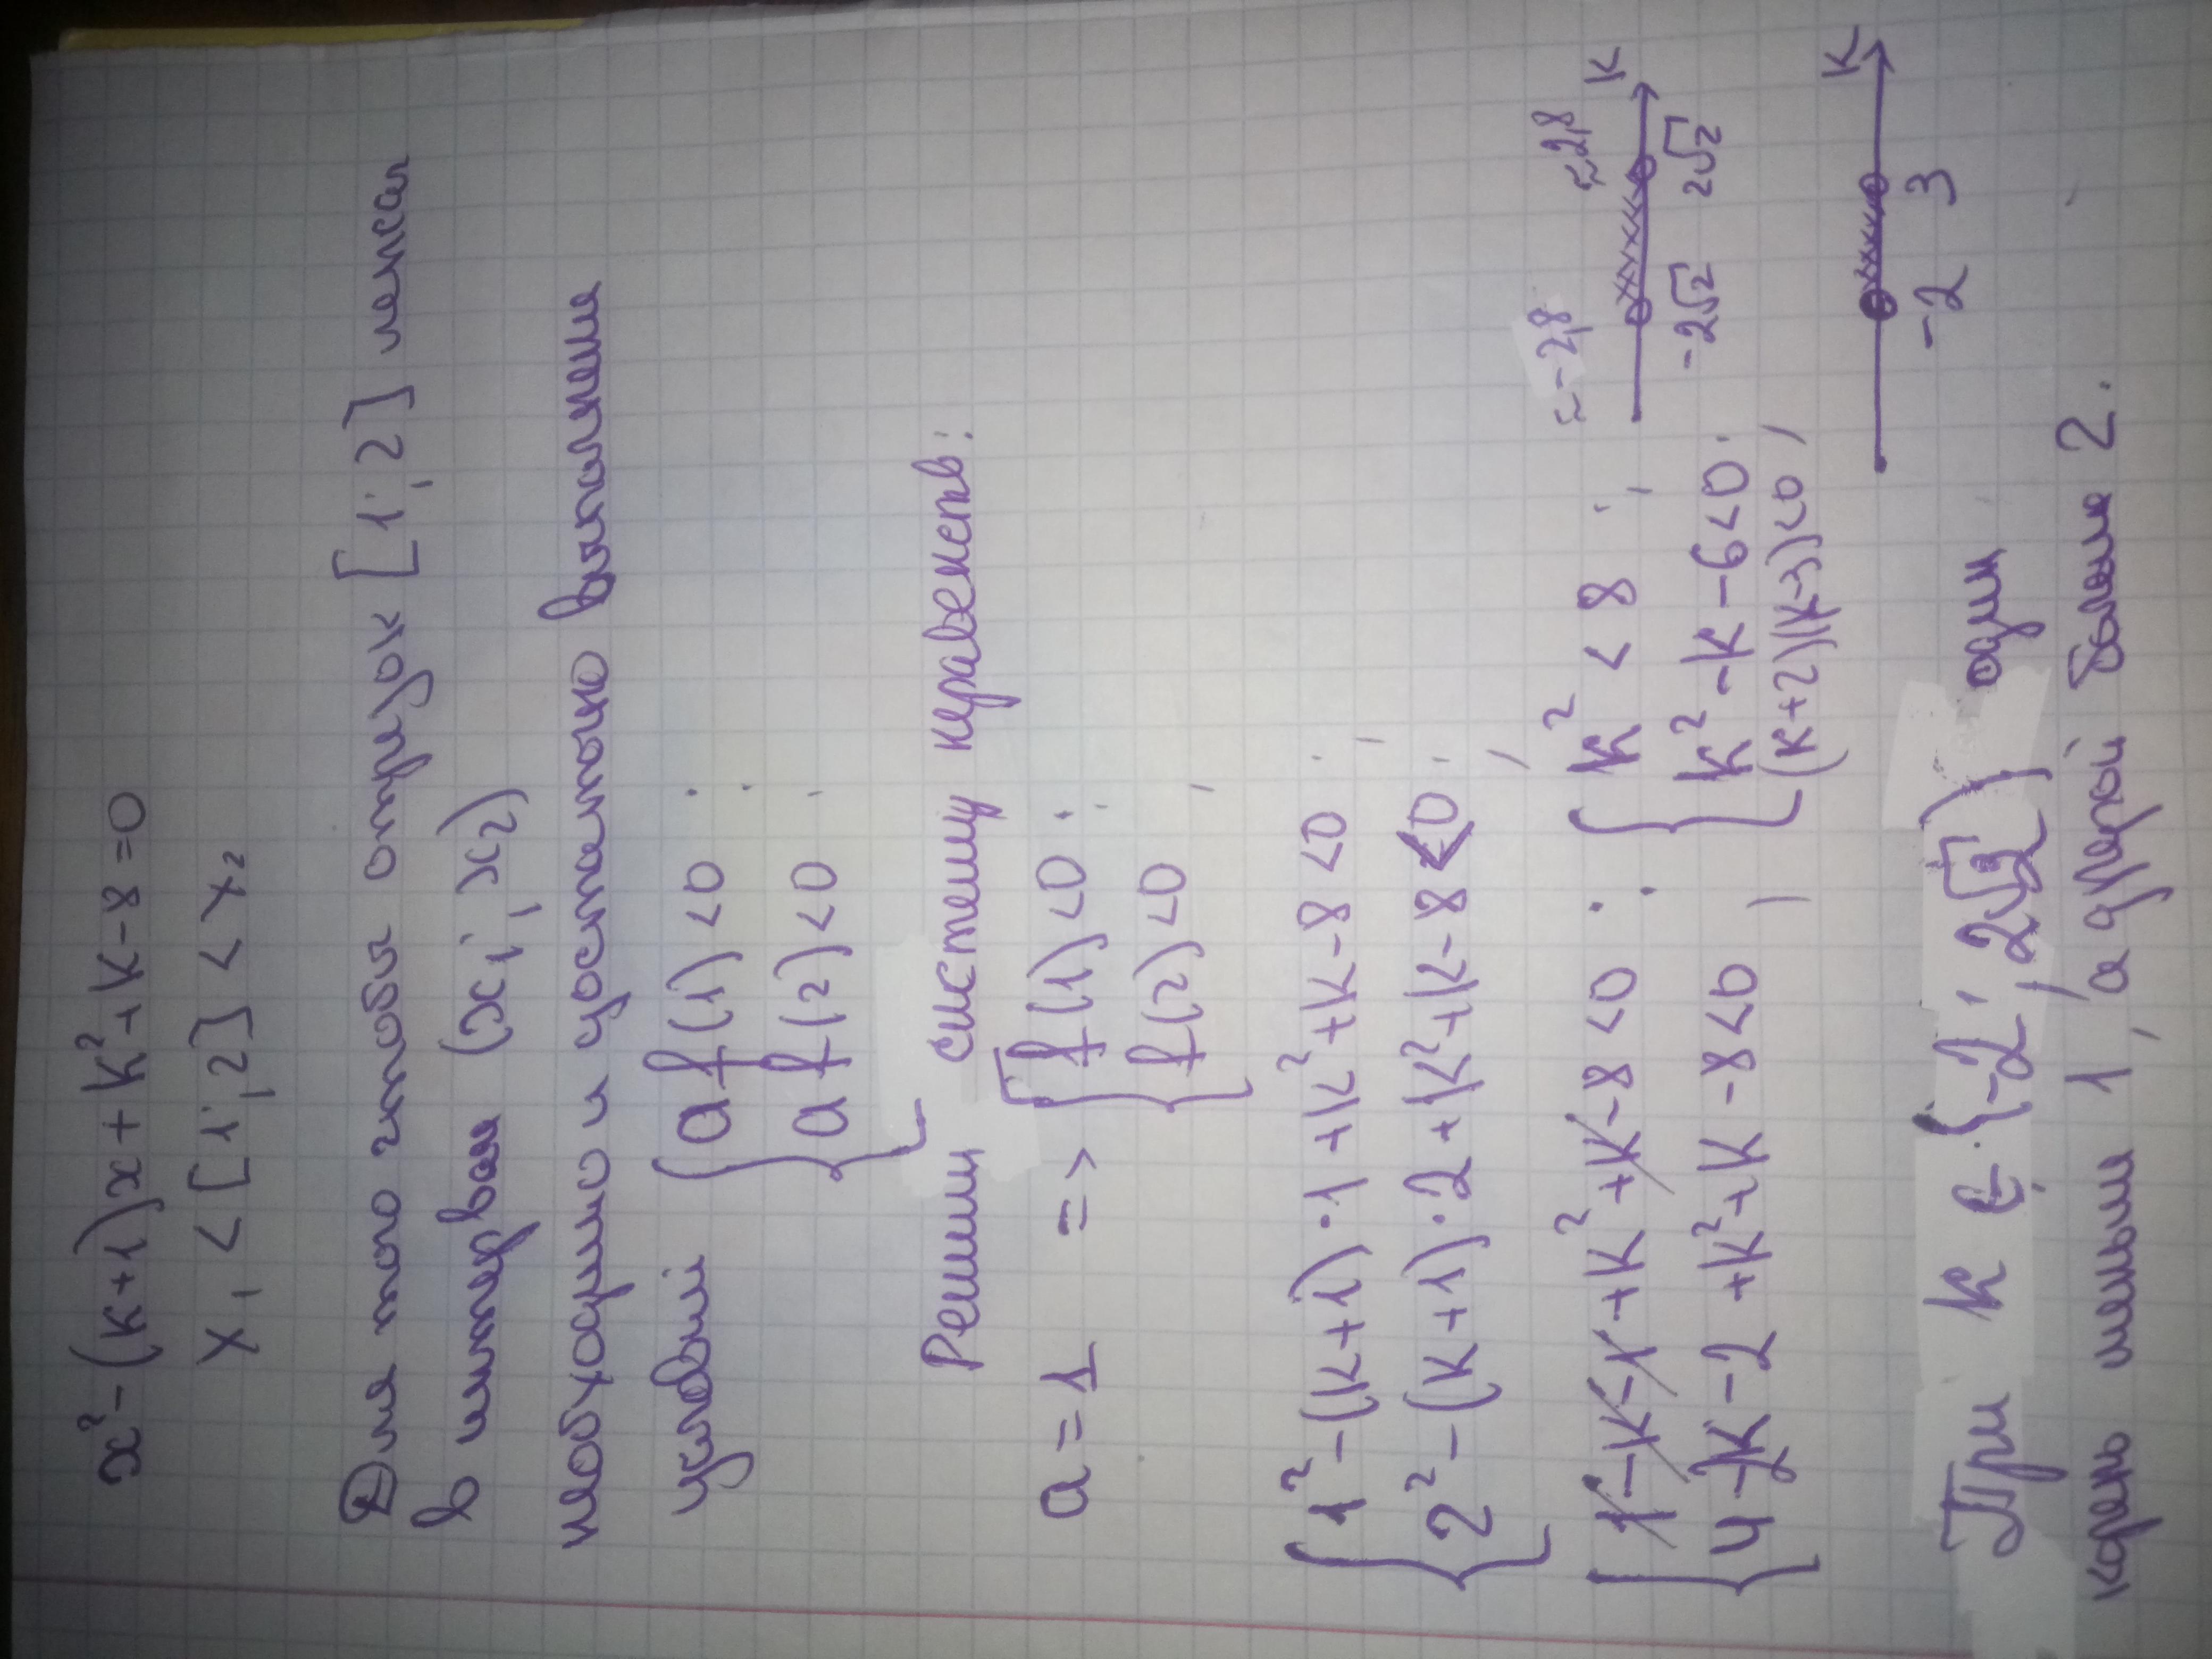 x² - (k+1)x + k² + k - 8 = 0
x₁ < [1; 2] < x₂
Для того чтобы отрезок [1; 2] лежал
в интервале (x₁; x₂)
необходимо и достаточно выполнение
условий { a f(1) < 0 ;
a f(2) < 0 ,
Решим систему неравенств:
a = 1 => { f(1) < 0 ;
f(2) < 0 ,
{ 1² - (k+1)·1 + k² + k - 8 < 0 ;
2² - (k+1)·2 + k² + k - 8 < 0 ;
{ 1 - k - 1 + k² + k - 8 < 0 ; { k² < 8 ; ≈ -2,8 ≈ 2,8 -2√2 2√2 k
4 - 2k - 2 + k² + k - 8 < 0 , k² - k - 6 < 0 ;
(k+2)(k-3) < 0 , -2 3 k
При k ∈ (-2; 2√2) один
корень меньше 1, а другой больше 2.